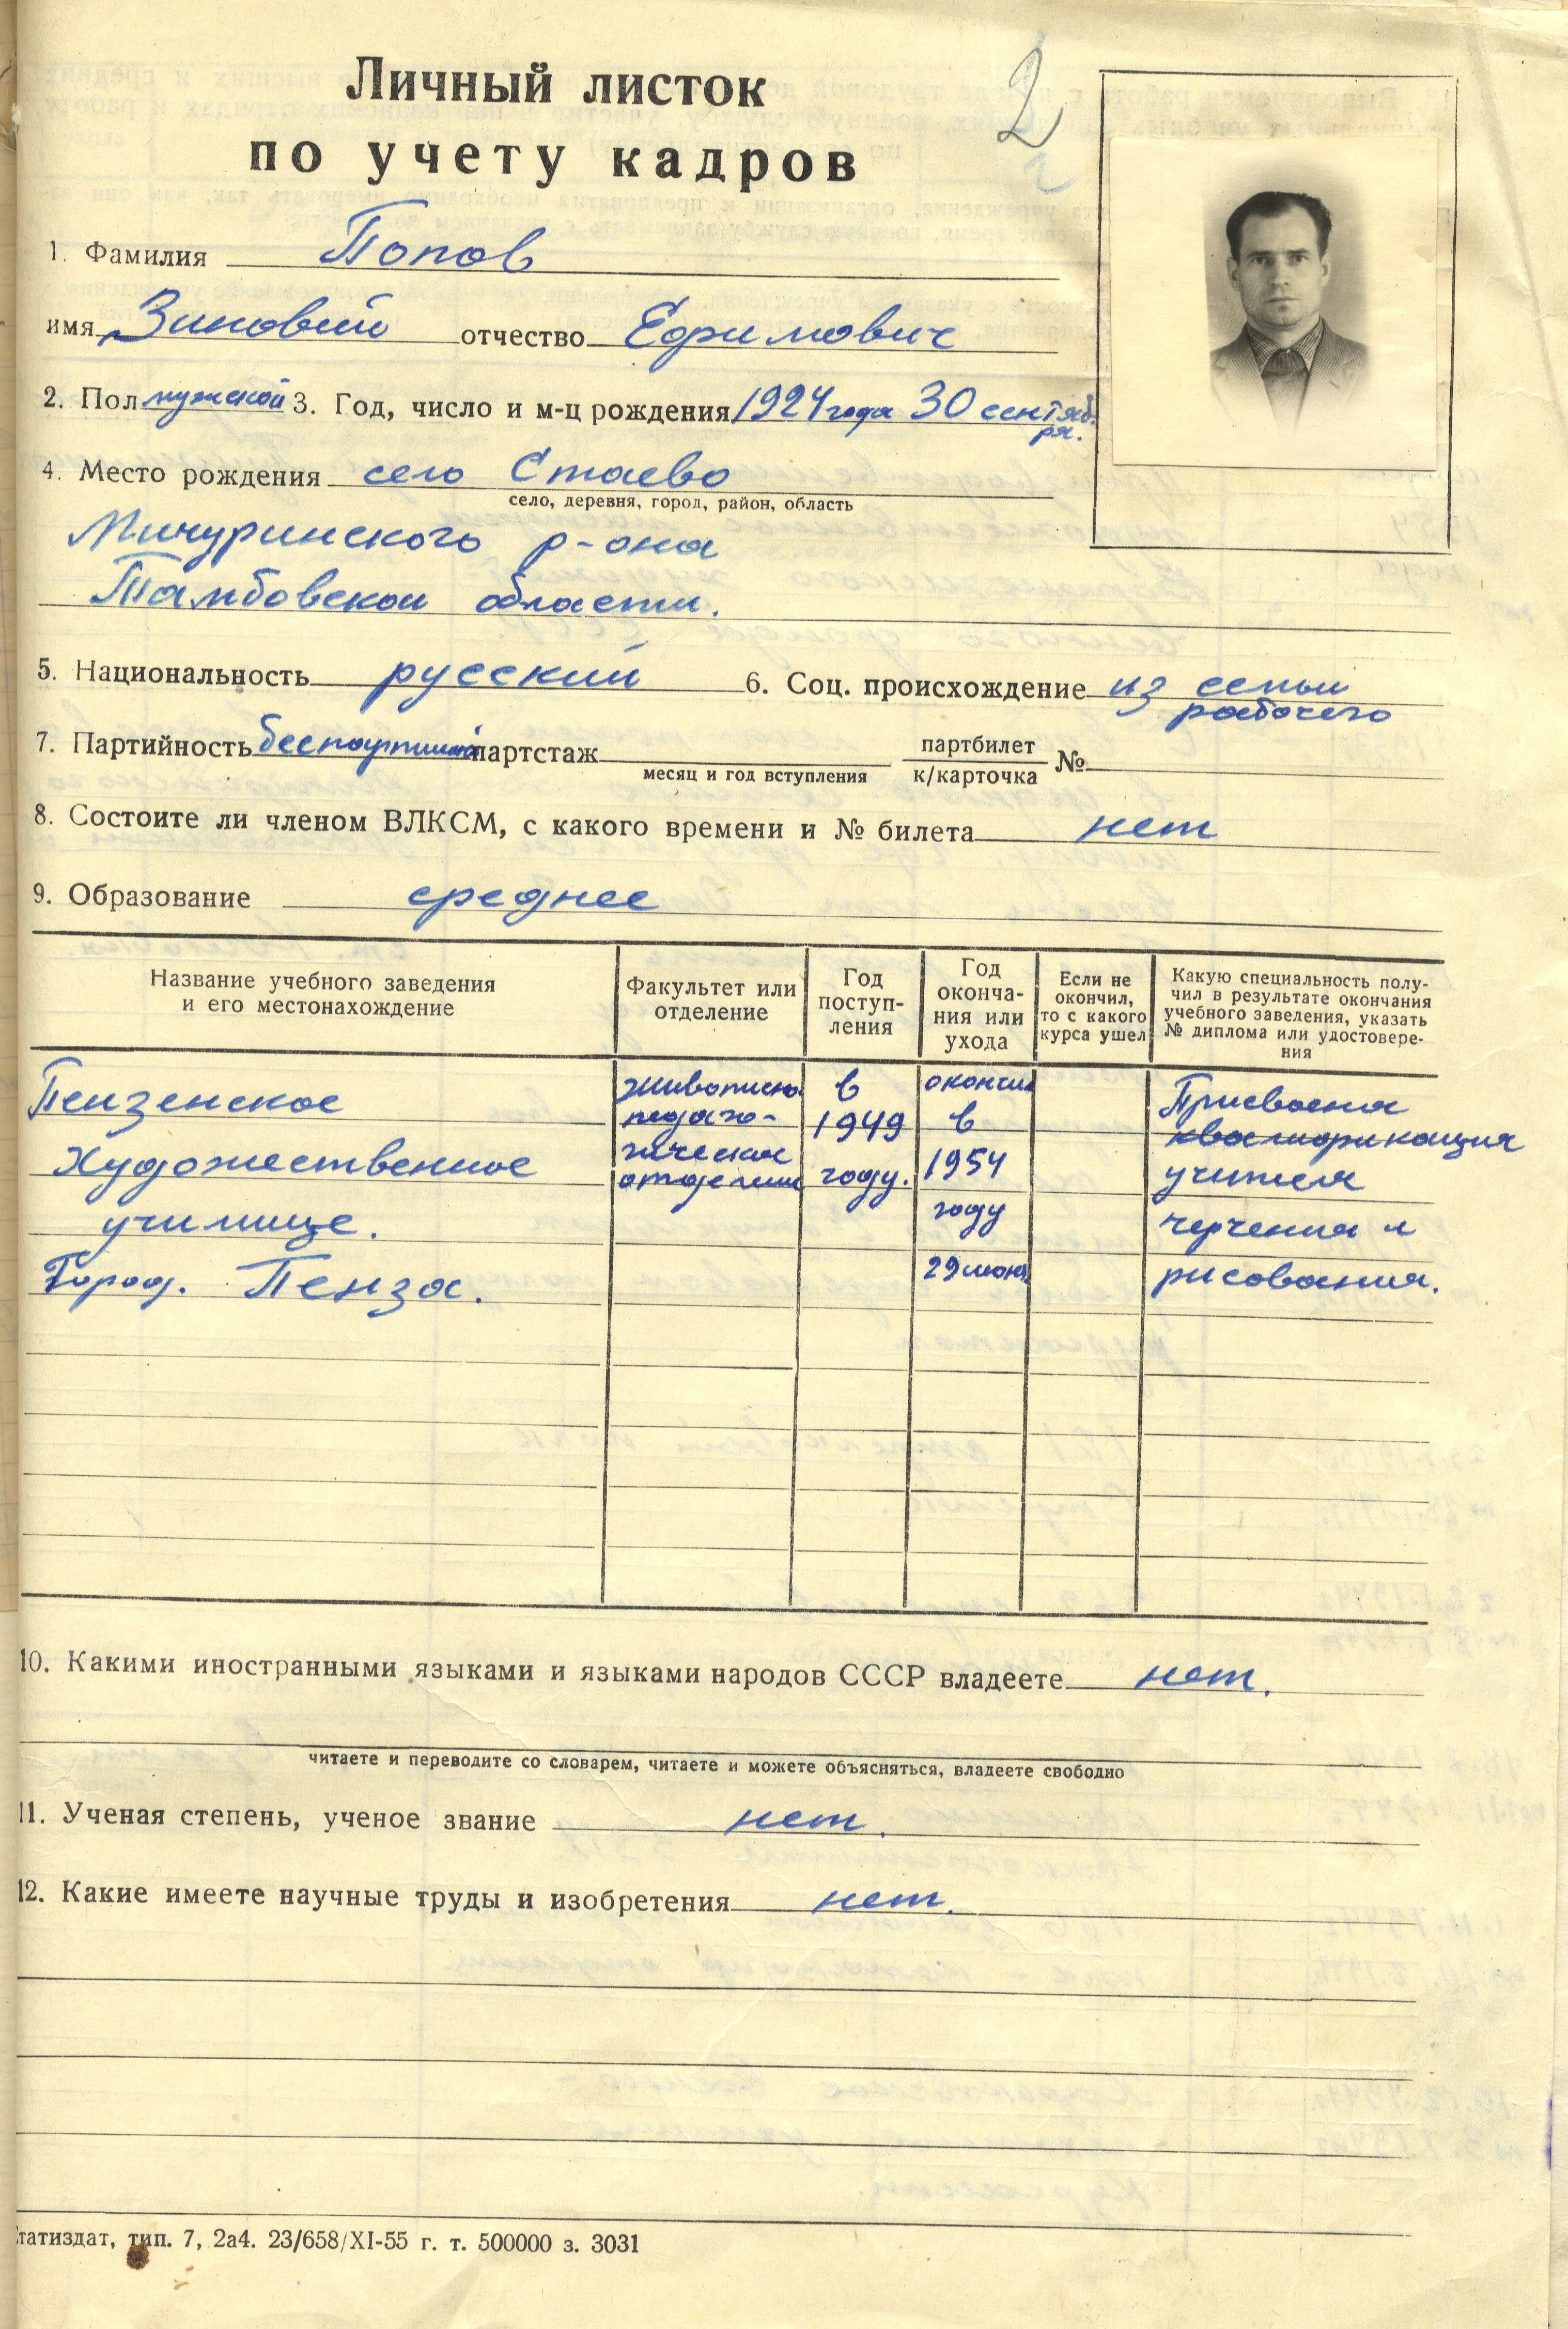 Личный листок
по учету кадров
2
1. Фамилия Попов
имя Зиновий отчество Ефимович
2. Пол мужской 3. Год, число и м-ц рождения 1924 года 30 сентяб.
ря.
4. Место рождения село Стаево
село, деревня, город, район, область
Мичуринского р-она
Тамбовской области.
5. Национальность русский 6. Соц. происхождение из семьи
рабочего
7. Партийность беспартийный партстаж партбилет
месяц и год вступления к/карточка №
8. Состоите ли членом ВЛКСМ, с какого времени и № билета нет
9. Образование среднее
Название учебного заведения
и его местонахождение
Факультет или
отделение
Год
поступ-
ления
Год
оконча-
ния или
ухода
Если не
окончил,
то с какого
курса ушел
Какую специальность полу-
чил в результате окончания
учебного заведения, указать
№ диплома или удостовере-
ния
Пензенское
Художественное
училище.
Город. Пенза.
живописно
педаго-
гическое
отделение
в
1949
году.
окончил
в
1954
году
29 июня
Присвоена
квалификация
учителя
черчения и
рисования.
10. Какими иностранными языками и языками народов СССР владеете нет.
читаете и переводите со словарем, читаете и можете объясняться, владеете свободно
11. Ученая степень, ученое звание нет.
12. Какие имеете научные труды и изобретения нет.
татиздат, тип. 7, 2а4. 23/658/XI-55 г. т. 500000 з. 3031